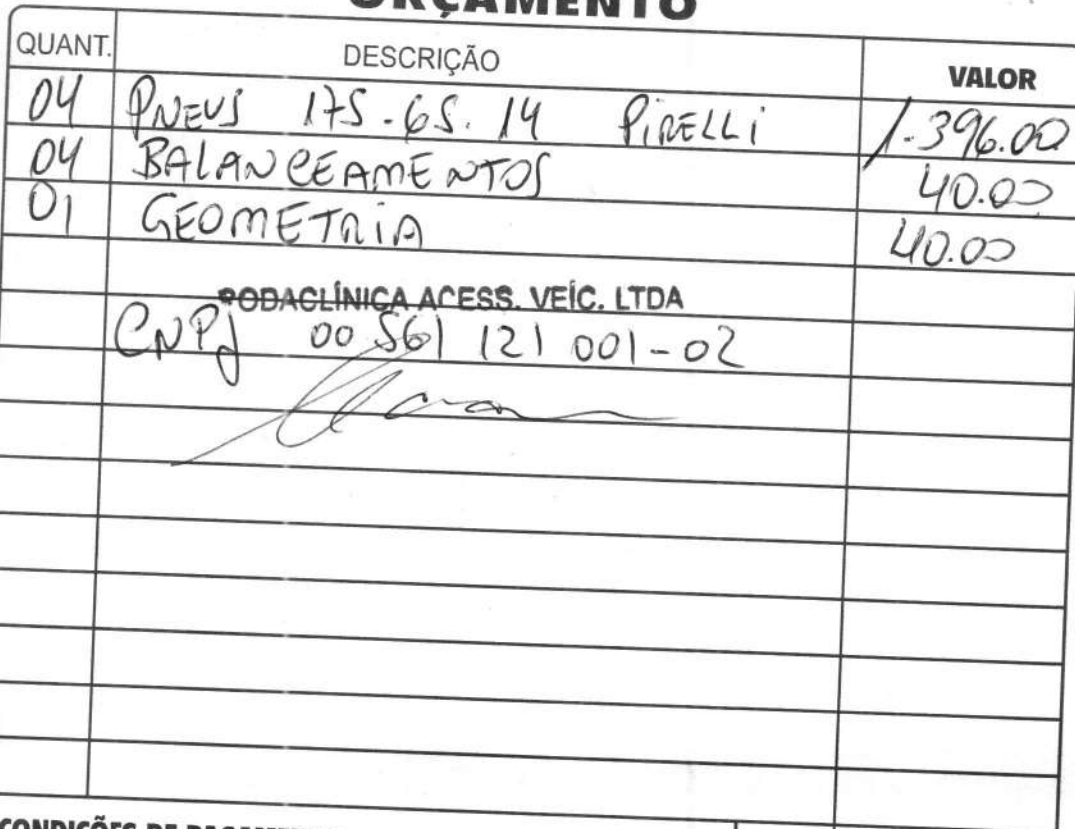 ORÇAMENTO
QUANT. DESCRIÇÃO VALOR
04 PNEUS 175-65.14 PIRELLI 1.396.00
04 BALANCEAMENTOS 40.00
01 GEOMETRIA 40.00
RODACLÍNICA ACESS. VEÍC. LTDA
CNPJ 00 561 121 001-02
CONDIÇÕES DE PAGAMENTO